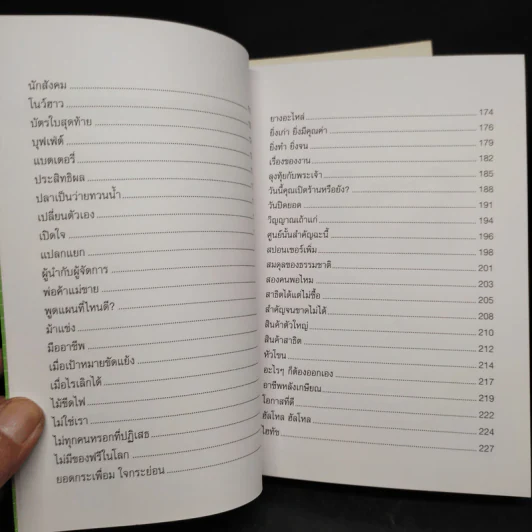 นักสังคม
โนว์ฮาว
บัตรใบสุดท้าย
บุฟเฟ่ต์
แบตเตอรี่
ประสิทธิผล
ปลาเป็นว่ายทวนน้ำ
เปลี่ยนตัวเอง
เปิดใจ
แปลกแยก
ผู้นำกับผู้จัดการ
พ่อค้าแม่ขาย
พูดแผนที่ไหนดี?
ม้าแข่ง
มืออาชีพ
เมื่อเป้าหมายขัดแย้ง
เมื่อไรเลิกได้
ไม้ขีดไฟ
ไม่ใช่เรา
ไม่ทุกคนหรอกที่ปฏิเสธ
ไม่มีของฟรีในโลก
ยอดกระเพื่อม ใจกระย่อน
ยางอะไหล่ 174
ยิ่งเก่า ยิ่งมีคุณค่า 176
ยิ่งทำ ยิ่งจน 179
เรื่องของงาน 182
ลุงทุ้ยกับพระเจ้า 185
วันนี้คุณเปิดร้านหรือยัง? 188
วันปิดยอด 191
วิญญาณเถ้าแก่ 194
ศูนย์นั้นสำคัญฉะนี้ 196
สปอนเซอร์เพิ่ม 198
สมดุลของธรรมชาติ 201
สองคนพอไหม 203
สาธิตได้แต่ไม่ซื้อ 205
สำคัญจนขาดไม่ได้ 208
สินค้าตัวใหญ่ 210
สินค้าสาธิต 212
หัวโขน 214
อะไรๆ ก็ต้องออกเอง 217
อาชีพหลังเกษียณ 219
โอกาสที่ดี 222
ฮัลโหล ฮัลโหล 224
ไฮทัช 227